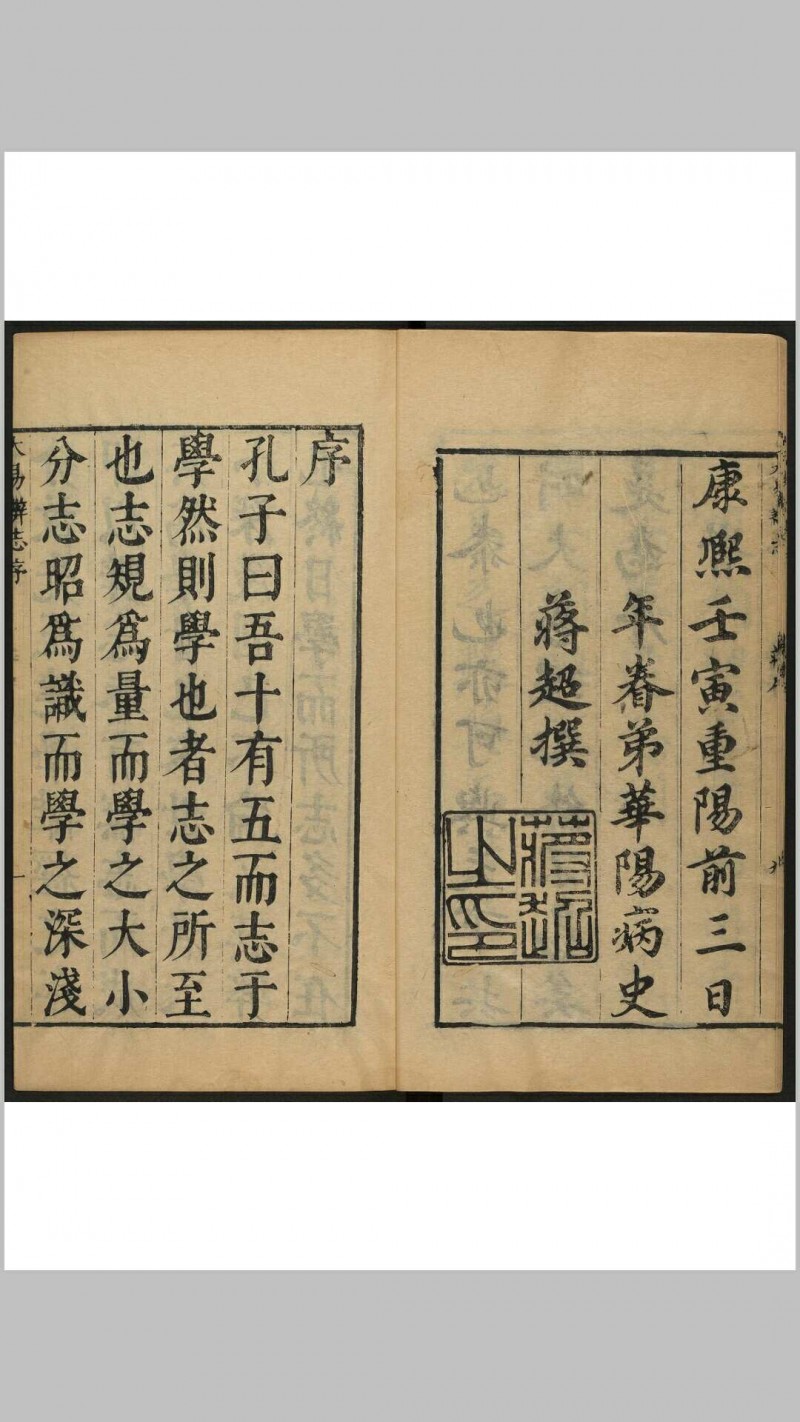 康熙壬寅重陽前三日
年眷弟華陽病史
蔣超撰
蔣超之印
序
孔子曰吾十有五而志于
學然則學也者志之所至
也志規爲量而學之大小
分志昭爲識而學之深淺
大易辨志序